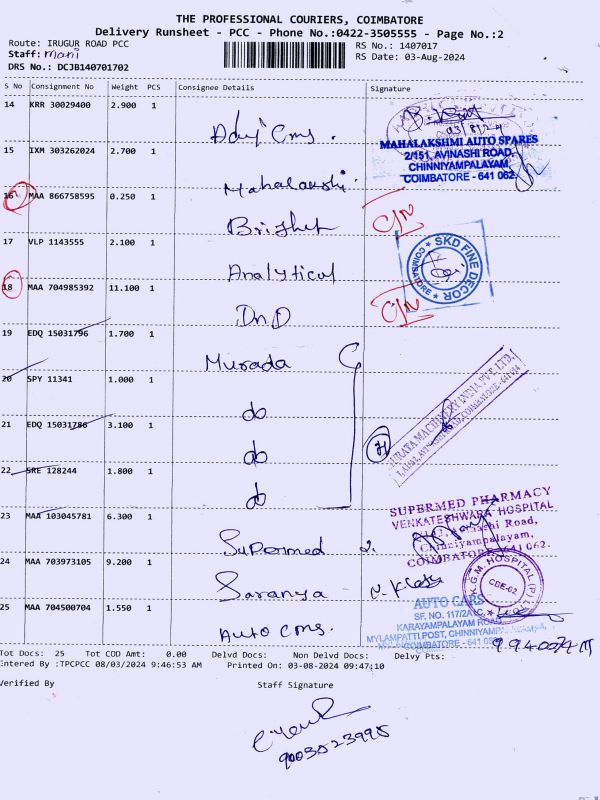 THE PROFESSIONAL COURIERS, COIMBATORE
Delivery Runsheet - PCC - Phone No.:0422-3505555 - Page No.:2
Route: IRUGUR ROAD PCC
RS No.: 1407017
Staff: mani
RS Date: 03-Aug-2024
DRS No.: DCJB140701702
S No Consignment No Weight PCS Consignee Details Signature
14 KRR 30029400 2.900 1
15 IXM 303262024 2.700 1
MAHALAKSHMI AUTO SPARES
2/151, AVINASHI ROAD,
CHINNIYAMPALAYAM,
COIMBATORE - 641 062
16 MAA 866758595 0.250 1 Mahalakshi
C/N
17 VLP 1143555 2.100 1
SKD FINE DECOR
COIMBATORE
18 MAA 704985392 11.100 1 Analytical
C/N
DnD
19 EDQ 15031796 1.700 1
Murada
20 SPY 11341 1.000 1
do
21 EDQ 15031786 3.100 1
do
22 SRE 128244 1.800 1
do
23 MAA 103045781 6.300 1
SUPERMED PHARMACY
VENKATESHWARA HOSPITAL
Chinniyampalayam,
COIMBATORE - 641 062.
Supermed
24 MAA 703973105 9.200 1
K.G.M. HOSPITAL (P) L
CBE-62
Saranya
25 MAA 704500704 1.550 1
AUTO CARS
SF, NO. 117/2A1C,
KARAYAMPALAYAM ROAD
MYLAMPATTI POST, CHINNIYAMP
COIMBATORE - 641 062
Auto Cms.
Tot Docs: 25 Tot COD Amt: 0.00 Delvd Docs: Non Delvd Docs: Delvy Pts:
Entered By :TPCPCC 08/03/2024 9:46:53 AM Printed On: 03-08-2024 09:47:10
Verified By Staff Signature
9003523995